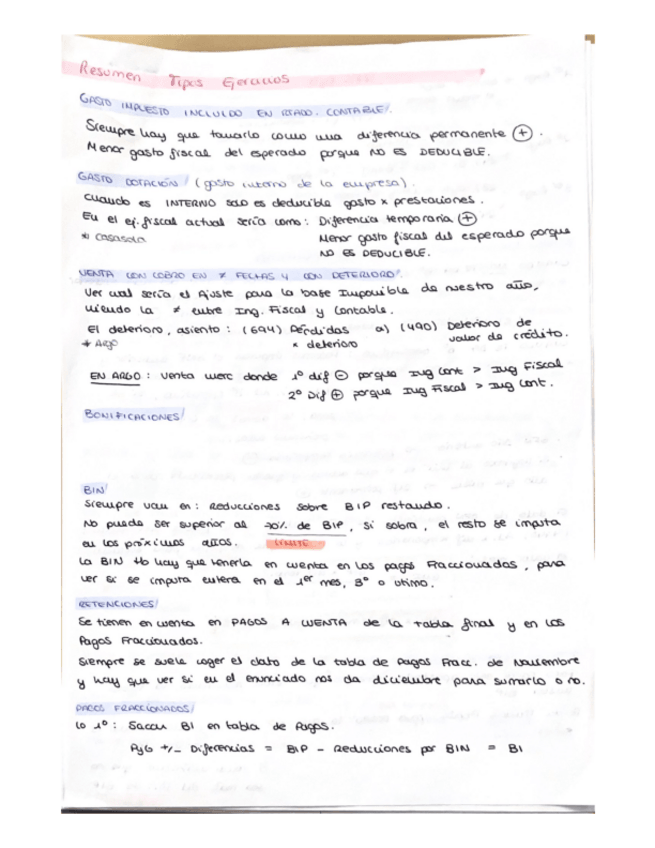 Resumen Tipos Ejercicios
GASTO IMPUESTO INCLUIDO EN RTADO. CONTABLE/.
Siempre hay que tomarlo como una diferencia permanente (+).
Menor gasto fiscal del esperado porque NO ES DEDUCIBLE.
GASTO DOTACIÓN / (gasto interno de la empresa).
Cuando es INTERNO solo es deducible gasto x prestaciones.
En el ej. fiscal actual sería como: Diferencia temporaria (+)
* Casasola Menor gasto fiscal del esperado porque
NO ES DEDUCIBLE.
VENTA CON COBRO EN ≠ FECHAS Y CON DETERIORO/.
Ver cual sería el Ajuste para la base Imponible de nuestro año,
viendo la ≠ entre Ing. Fiscal y Contable.
El deterioro, asiento: (694) Pérdidas a) (490) Deterioro de
* Argo x deterioro valor de crédito.
EN ARGO: Venta merc donde 1º dif (-) porque Ing Cont > Ing Fiscal
2º Dif (+) porque Ing Fiscal > Ing Cont.
BONIFICACIONES/
BIN/
Siempre van en: Reducciones sobre BIP restando.
No puede ser superior al 70% de BIP, si sobra, el resto se imputa
en los próximos años. LÍMITE
La BIN tb hay que tenerla en cuenta en los pagos Fraccionados, para
ver si se imputa entera en el 1er mes, 3º o último.
RETENCIONES/
Se tienen en cuenta en PAGOS A CUENTA de la tabla final y en los
Pagos Fraccionados.
Siempre se suele coger el dato de la tabla de Pagos Fracc. de Noviembre
y hay que ver si en el enunciado nos da diciembre para sumarlo o no.
PAGOS FRACCIONADOS/
Lo 1º: Sacar BI en tabla de Pagos.
PyG +/- Diferencias = BIP - Reducciones por BIN = BI